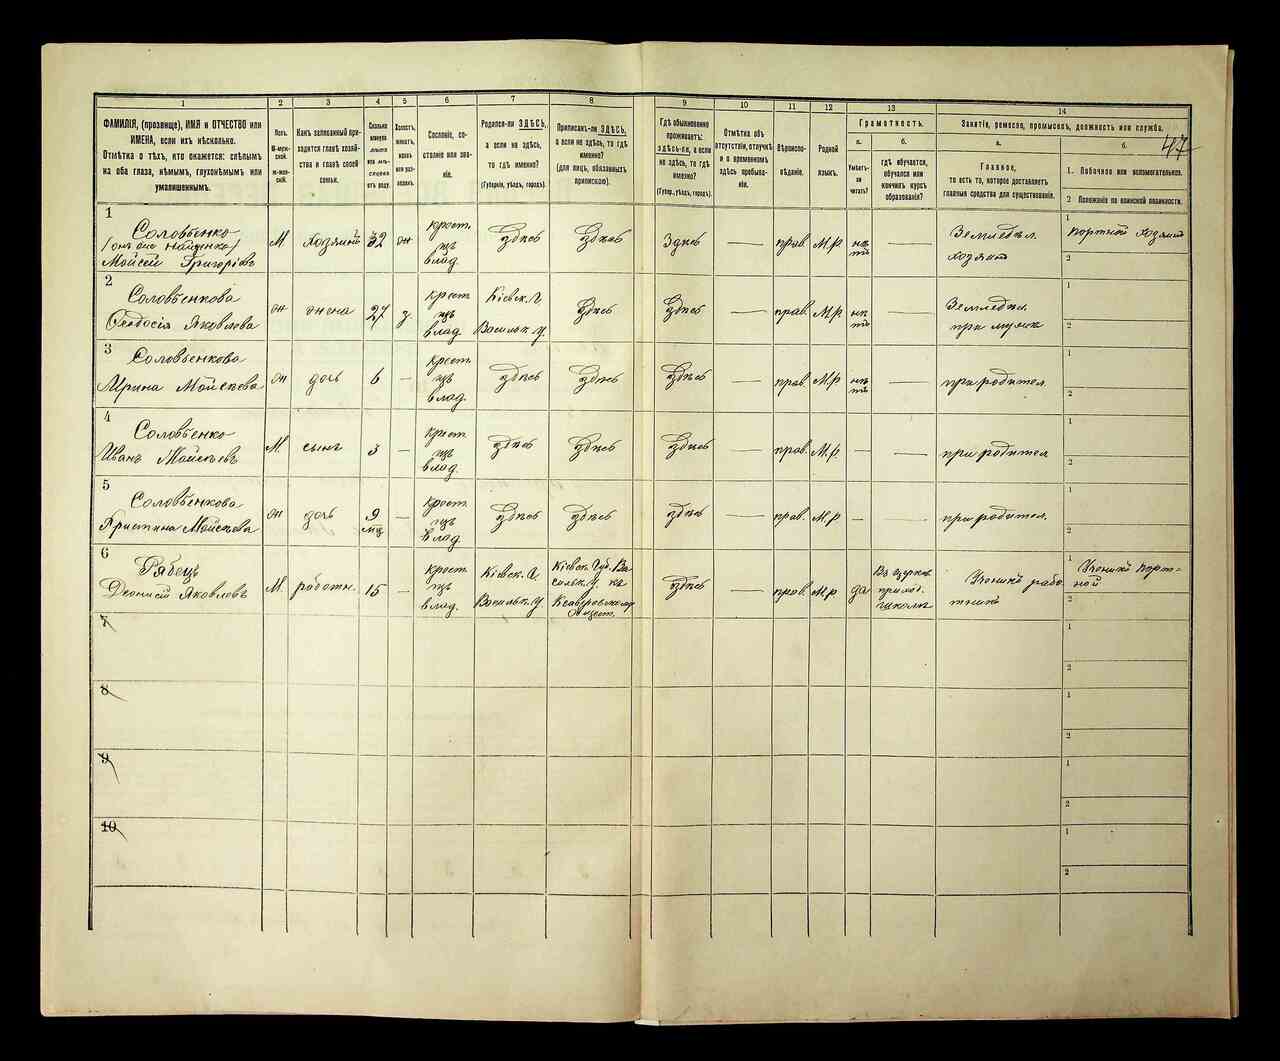 1 2 3 4 5 6 7 8 9 10 11 12 13 14
ФАМИЛІЯ, (прозвище), ИМЯ и ОТЧЕСТВО или
ИМЕНА, если ихъ нѣсколько.
Отмѣтка о тѣхъ, кто окажется: слѣпымъ
на оба глаза, нѣмымъ, глухонѣмымъ или
умалишеннымъ.
Полъ.
М-муж-
ской.
Ж-жен-
скій.
Какъ записанный при-
ходится главѣ хозяй-
ства и главѣ своей
семьи.
Сколько
минуло
лѣтъ
или мѣ-
сяцевъ
отъ роду.
Холостъ,
женатъ,
вдовъ
или раз-
веденъ.
Сословіе, со-
стояніе или зва-
ніе.
Родился-ли ЗДѢСЬ,
а если не здѣсь,
то гдѣ именно?
(Губернія, уѣздъ, городъ).
Приписанъ-ли ЗДѢСЬ,
а если не здѣсь, то гдѣ
именно?
(для лицъ, обязанныхъ
припискою).
Гдѣ обыкновенно
проживаетъ:
здѣсь-ли, а если
не здѣсь, то гдѣ
именно?
(Губер., уѣздъ, городъ).
Отмѣтка объ
отсутствіи, отлучкѣ
и о временномъ
здѣсь пребыва-
ніи.
Вѣроиспо-
вѣданіе.
Родной
языкъ.
Грамотность.
а.
Умѣетъ-
ли
читать?
б.
гдѣ обучается,
обучался или
кончилъ курсъ
образованія?
Занятіе, ремесло, промыселъ, должность или служба.
а.
Главное,
то есть то, которое доставляетъ
главныя средства для существованія.
б.
47
1. Побочное или вспомогательное.
2 Положеніе по воинской повинности.
1
Соловьенко
(онъ же Найденко)
Мойсей Григоріевъ
М хозяинъ 32
крест.
изъ
влад.
здѣсь здѣсь здѣсь — прав. М.р
нѣ
тъ
—
Земледѣл.
хозяинъ
1 портной хозяинъ
2
2
Соловьенкова
Ѳеодосія Яковлева
жена 27 з
крест.
изъ
влад.
Кіевск. г.
Васильк. у.
здѣсь здѣсь — прав. М.р
нѣ
тъ
—
Земледѣл.
при мужѣ
1
2
3
Соловьенкова
Ирина Мойсѣева
дочь 6 —
крест.
изъ
влад.
здѣсь здѣсь здѣсь — прав. М.р
нѣ
тъ
—
при родител.
1
2
4
Соловьенко
Иванъ Мойсѣевъ
М. сынъ 3 —
крест.
изъ
влад.
здѣсь здѣсь здѣсь — прав. М.р. — —
при родител.
1
2
5
Соловьенкова
Христина Мойсѣева
дочь 9
мц —
крест.
изъ
влад.
здѣсь здѣсь здѣсь — прав. М.р —
при родител.
1
2
6
Рябецъ
Діонисій Яковлевъ
М. работн. 15 —
крест.
изъ
влад.
Кіевск. г.
Васильк. у.
Кіевск. Губ. Ва
сильк. у. къ
общест.
здѣсь — прав. М.р да
Въ церк.
приход.
школѣ
Ученикъ рабо
тникъ
1 Ученикъ порт-
ной
2
7
1
2
8
1
2
9
1
2
10
1
2